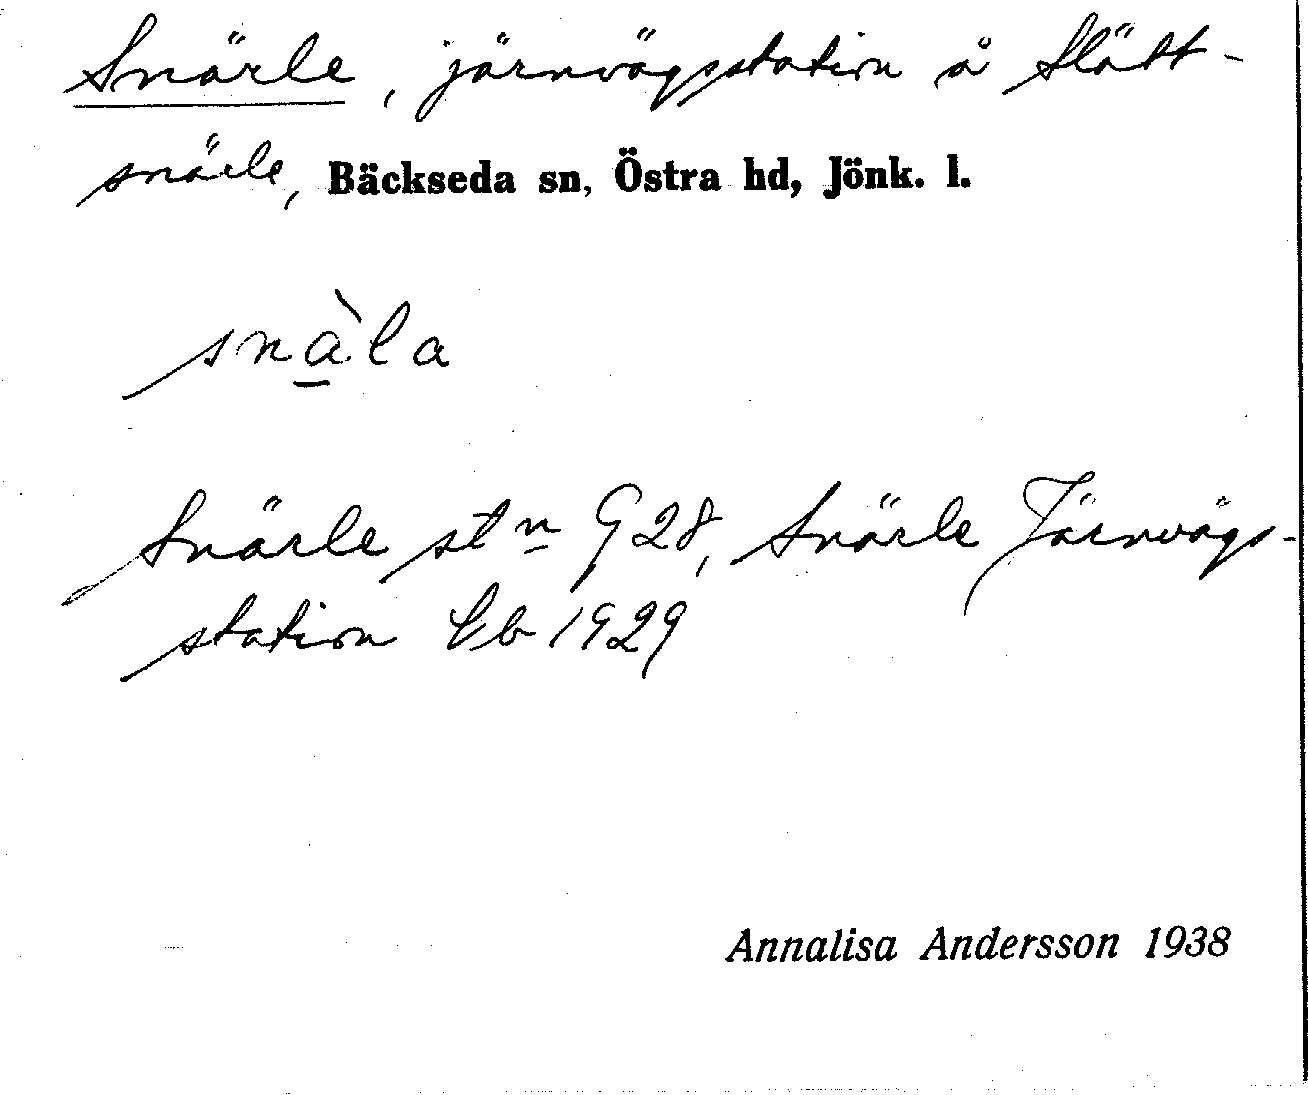 Snärle, järnvägsstation å Slätt-
snärle, Bäckseda sn, Östra hd, Jönk. l.
snàla
Snärle stn G 28, Snärle Järnvägs-
station Eb 1929
Annalisa Andersson 1938